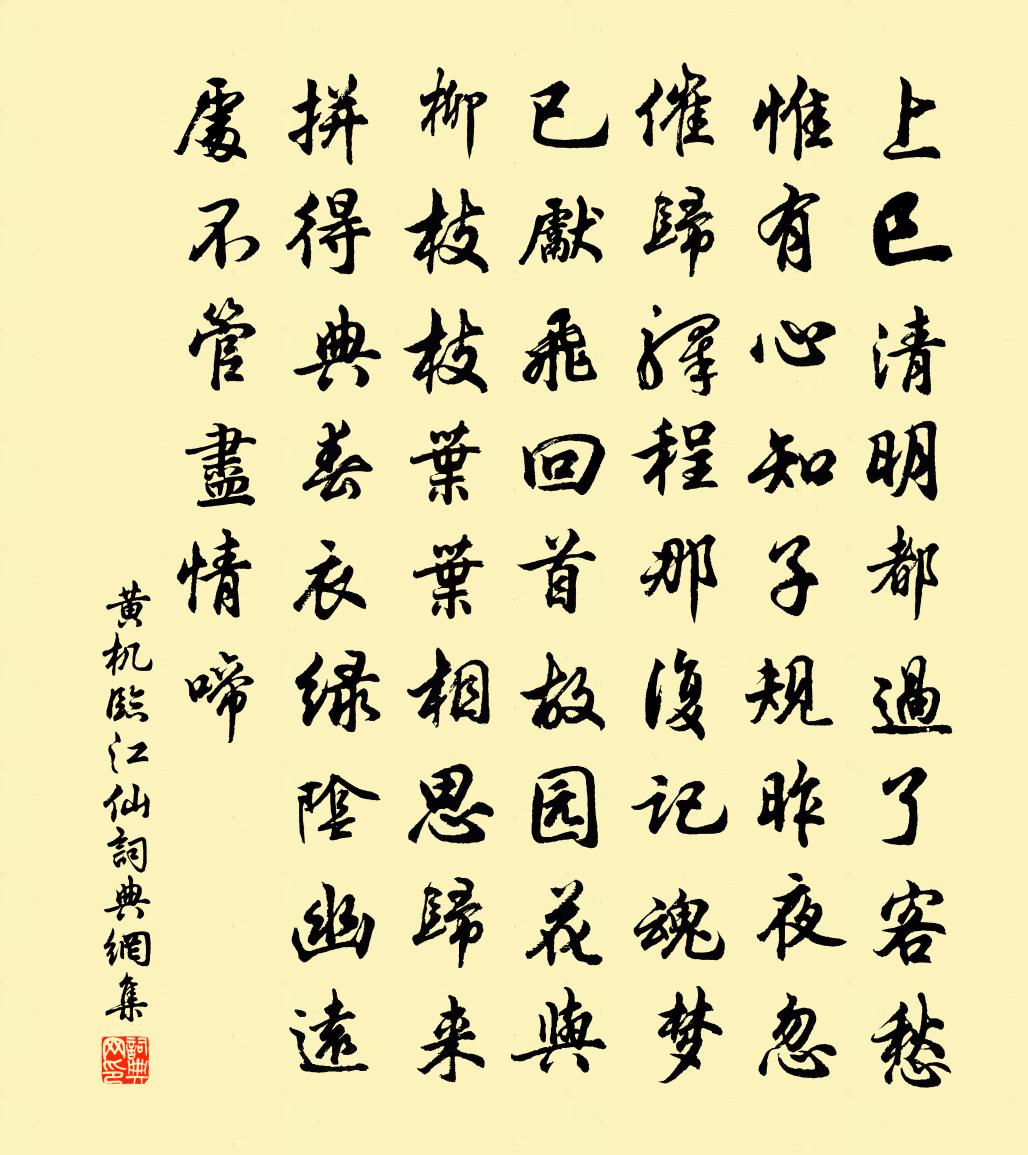 上巳清明都過了客愁
惟有心知子規昨夜忽
催歸驛程那復記魂梦
已獻飛回首故园花與
柳枝枝葉葉相思歸来
拼得典春衣绿陰幽遠
處不管盡情啼
黄机臨江仙詞典網集
詞典网印